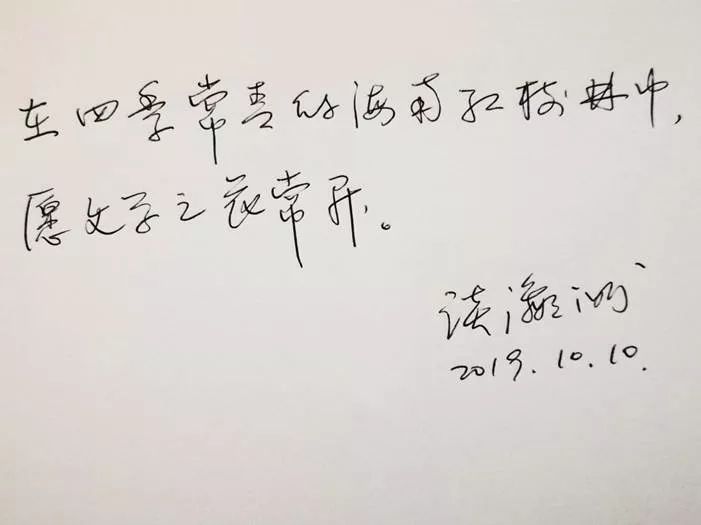 在四季常青的海南红树林中，
愿文学之花常开。
谈瀛洲
2019.10.10.